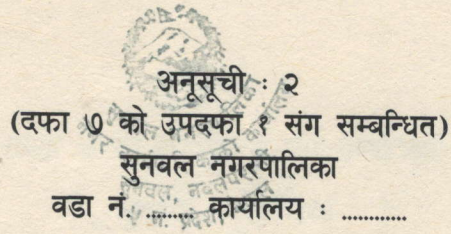 अनूसूची : २
(दफा ७ को उपदफा १ संग सम्बन्धित)
सुनवल नगरपालिका
वडा नं. ......... कार्यालय : ............